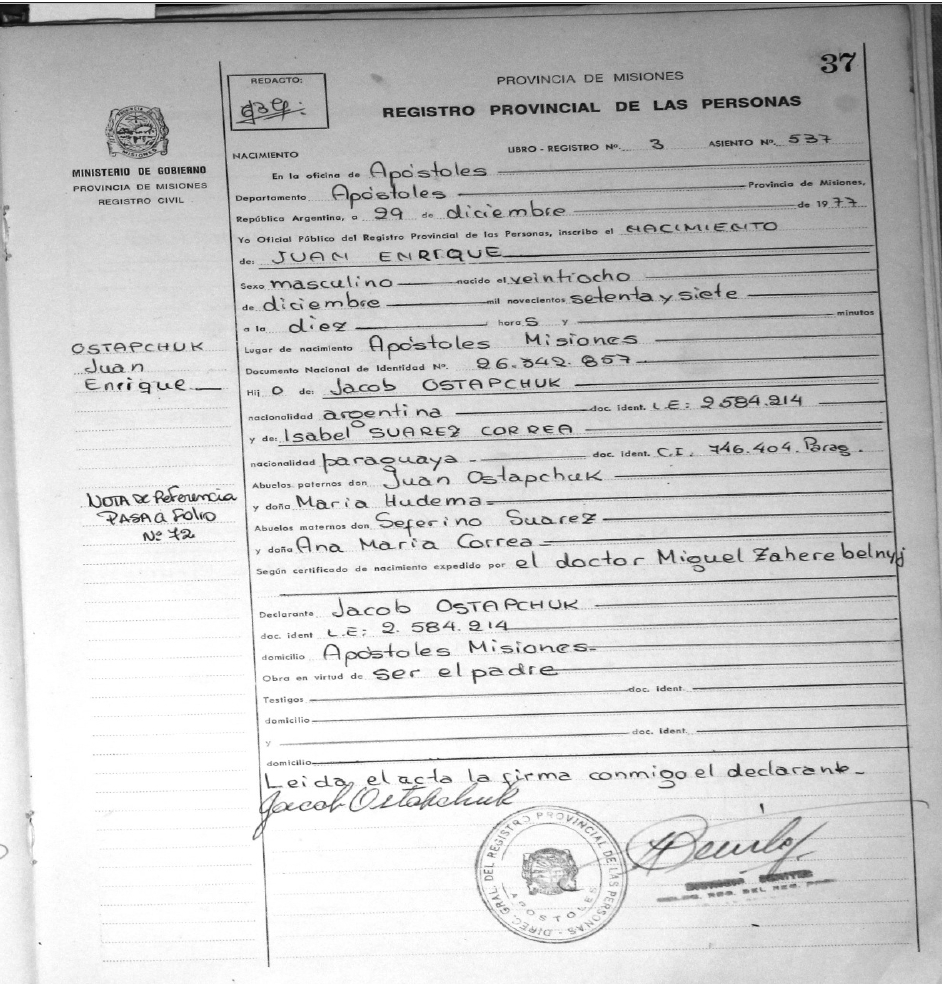 37
REDACTO:
PROVINCIA DE MISIONES
REGISTRO PROVINCIAL DE LAS PERSONAS
MINISTERIO DE GOBIERNO
PROVINCIA DE MISIONES
REGISTRO CIVIL
NACIMIENTO LIBRO - REGISTRO Nº. 3 ASIENTO Nº. 537
En la oficina de Apóstoles
Departamento Apóstoles Provincia de Misiones,
República Argentina, a 29 de diciembre de 1977
Yo Oficial Público del Registro Provincial de las Personas, inscribo el NACIMIENTO
de: JUAN ENRIQUE
Sexo masculino nacido el veintiocho
de diciembre mil novecientos setenta y siete
a la diez hora s y minutos
OSTAPCHUK
Juan
Enrique
Lugar de nacimiento Apóstoles Misiones
Documento Nacional de Identidad Nº. 26.342.857
Hij o de: Jacob OSTAPCHUK
nacionalidad argentina doc. ident. L.E: 2584.214
y de: Isabel SUAREZ CORREA
nacionalidad paraguaya doc. ident. C.I. 746.404. Parag.
Abuelos paternos don Juan Ostapchuk
y doña Maria Hudema
NOTA de Referencia
PASA a Folio
Nº 72
Abuelos maternos don Seferino Suarez
y doña Ana Maria Correa
Según certificado de nacimiento expedido por el doctor Miguel Zaherebelnyj
Declarante Jacob OSTAPCHUK
doc. ident L.E: 2.584.214
domicilio Apóstoles Misiones
Obra en virtud de ser el padre
Testigos doc. ident.
domicilio
y doc. ident.
domicilio
Leida el acta la firma conmigo el declarante
Jacob Ostapchuk
DIREC. GRAL. DEL REGISTRO PROVINCIAL DE LAS PERSONAS - MISIONES
APOSTOLES